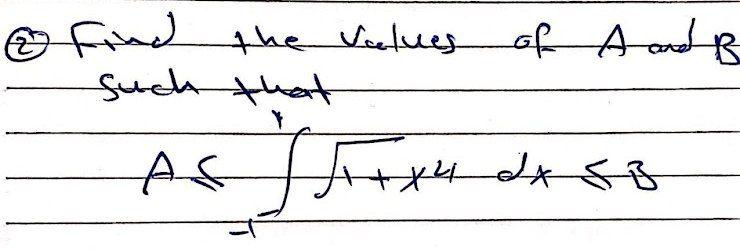 ② Find the values of A and B
such that
A ≤ ∫₋₁¹ √(1+x⁴) dx ≤ B